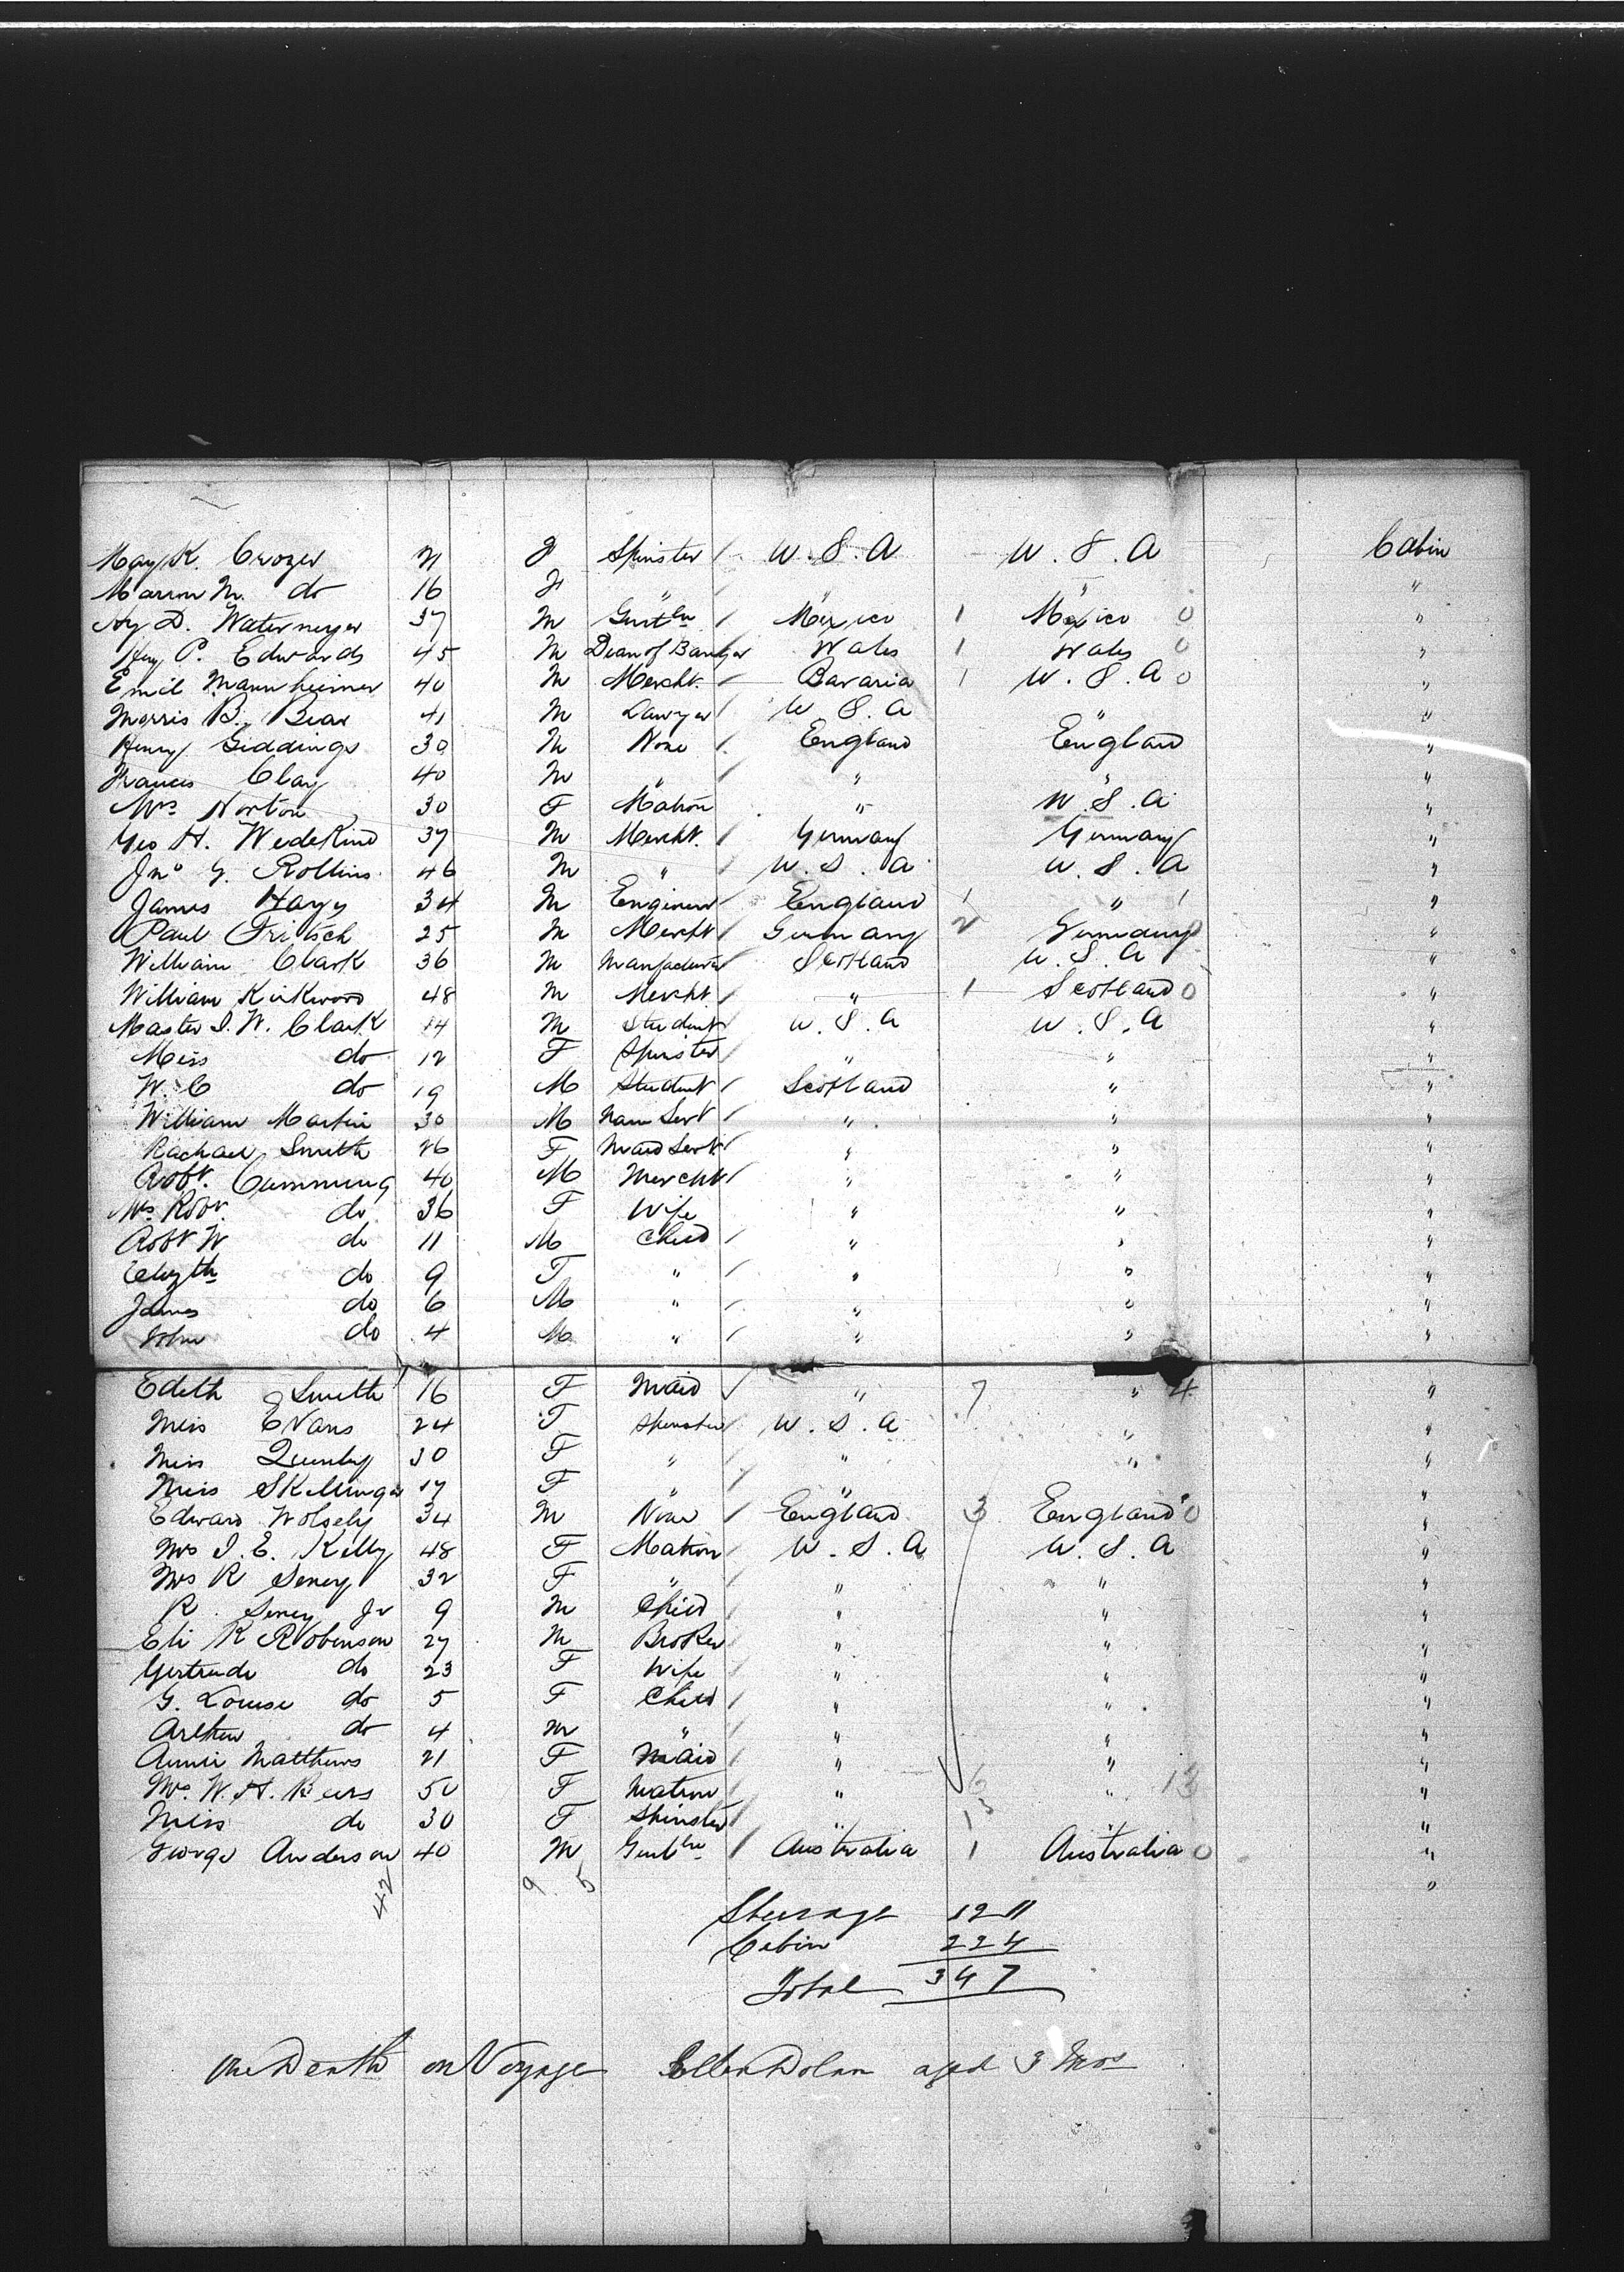 Mary K. Crozer 21 F Spinster / U.S.A U.S.A Cabin
Marion M. do 16 F " " "
Hy D. Watermeyer 37 M Gentln / Mexico 1 Mexico 0 "
Hy P. Edwards 45 M Dean of Bangor Wales 1 Wales 0 "
Emil Mannheimer 40 M Mercht. / Bavaria 1 U.S.A 0 "
Morris B. Bear 41 M Lawyer / U S. A " "
Henry Giddings 30 M None / England England "
Frances Clay 40 M " / " " "
Mrs. Norton 30 F Matron " U.S.A "
Geo H. Wedekind 37 M Mercht. Germany Germany "
Jno G. Rollins 46 M " U.S.A U.S.A "
James Hays 34 M Engineer England 1 " 1 "
Paul Fritsch 25 M Mercht Germany 2 Germany "
William Clark 36 M Manfacturer Scotland U.S.A "
William Kirkwood 48 M Mercht. / " 1 Scotland 0 "
Master J. W. Clark 14 M Student U.S.A U.S.A "
Miss do 12 F Spinster / " " "
W. C do 19 M Student / Scotland " "
William Martin 30 M Man Servt / " " "
Rachael Smith 26 F Maid Servt / " " "
Robt. Cumming 40 M Mercht / " " "
Mrs Robt. do 36 F Wife " " "
Robt W do 11 M Child / " " "
Elizth do 9 F " / " " "
James do 6 M " / " " "
John do 4 M " / " " "
Edith Smith 16 F Maid / " 7 " 4 "
Miss Evans 24 F Spinster / U.S.A " "
Miss Quimby 30 F " " " "
Miss Skillinger 17 F " / " "
Edward Wolsely 34 M None / England 3 England 0 "
Mrs J. E. Kelly 48 F Matron / U.S.A U.S.A "
Mrs R Seney 32 F " / " " "
R. Seney Jr 9 M Child / " " "
Eli K Robinson 27 M Broker / " " "
Gertrude do 23 F Wife / " " "
G. Louise do 5 F Child / " " "
Arthur do 4 M " / " " "
Annie Matthews 21 F Maid / " " "
Mrs. W. H. Beers 50 F Matron / " 6 " 13 "
Miss do 30 F Spinster / " 13 " "
George Anderson 40 M Gentln / Australia 1 Australia 0 "
42 9 5 "
Steerage
Cabin 224
Total 347
One Death on Voyage Ellen Dolan aged 3 Mos